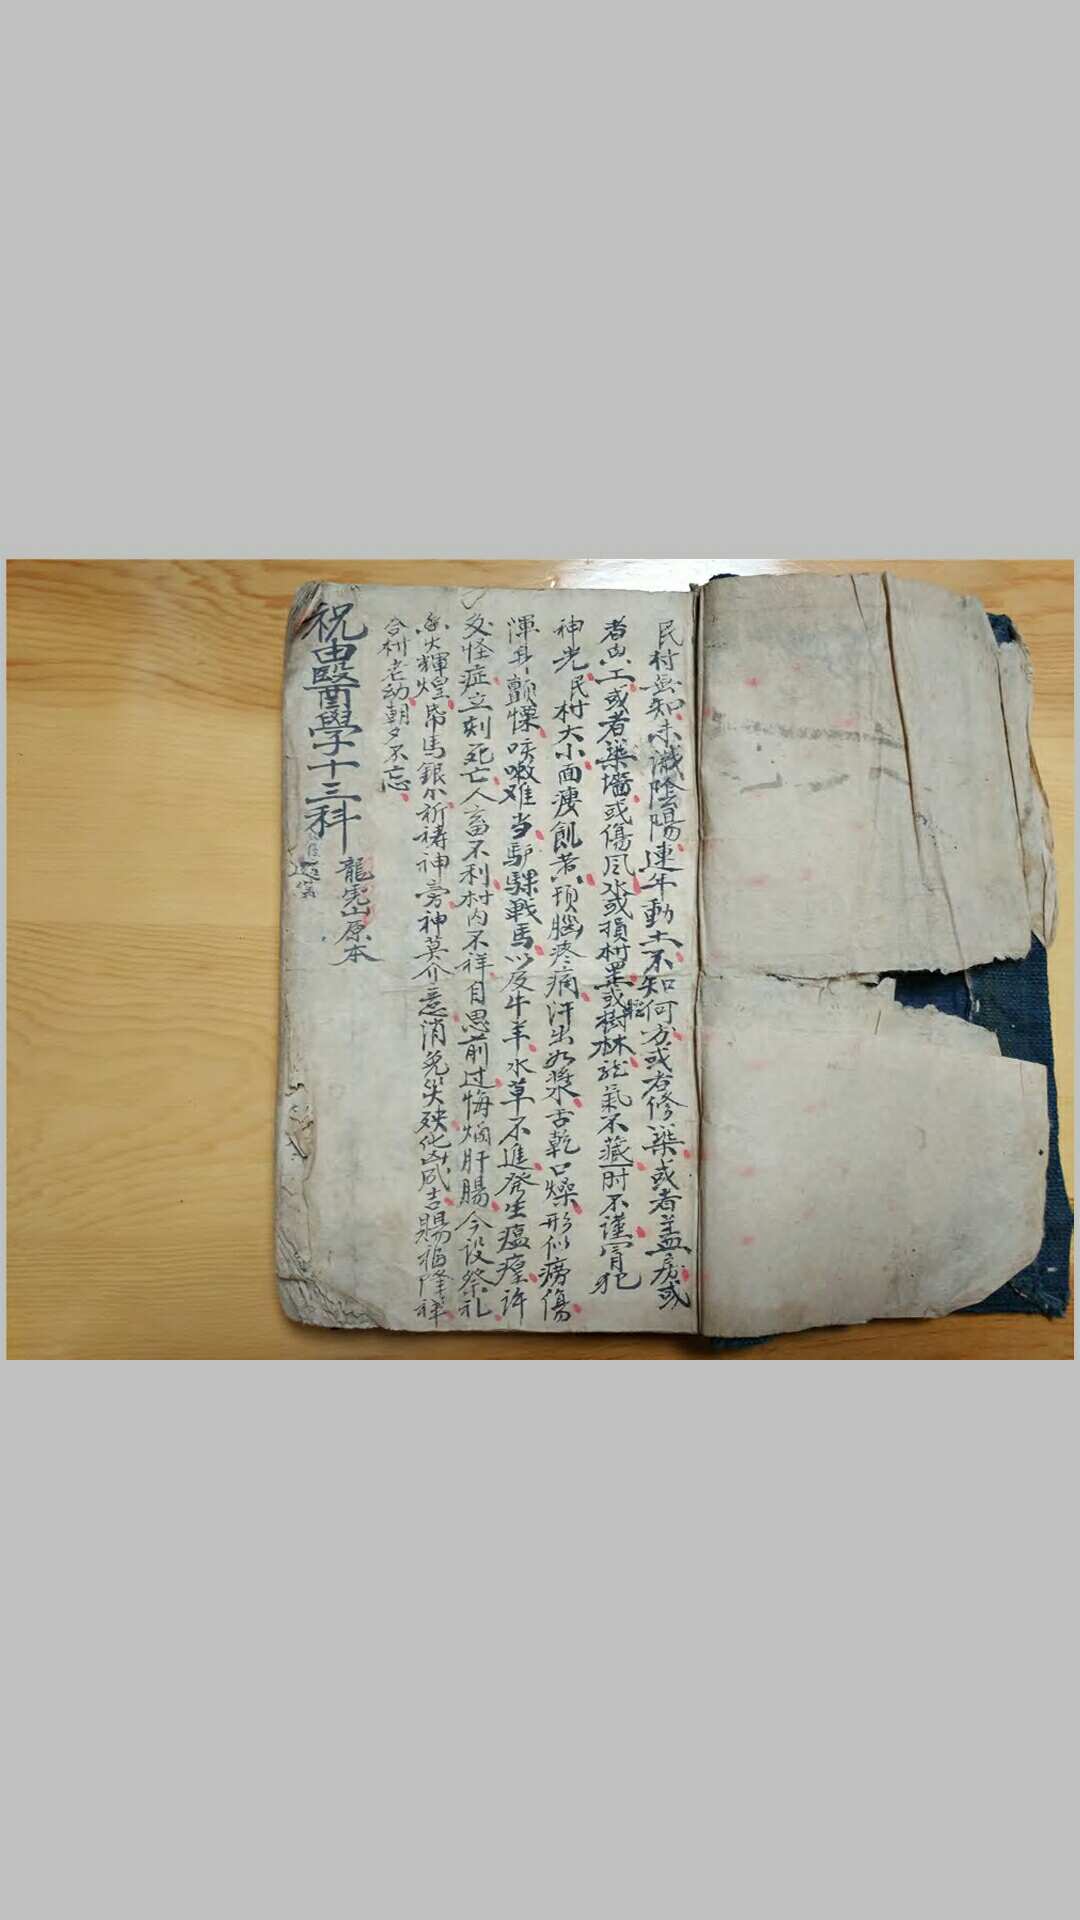 民村無知未識陰陽連年動土不知何方或者修築或者蓋房或
者出工或者築墻或傷風水或損村里或樹林龍氣不藏一時不謹冒犯
神光民村大小面瘦飢者頂腦疼痛汗出如漿舌乾口燥形似癆傷
渾身顫慄咳嗽难当驴騾戰馬以及牛羊水草不進發生瘟㾮许
多怪症立刻死亡人畜不利村内不祥自思前过悔煩肝腸今设祭礼
香火輝煌帋馬銀 祈祷神旁神莫介意消免災殃化凶成吉賜福降祥
合村老幼朝夕不忘
祝由醫學十三科
龍虎山原本